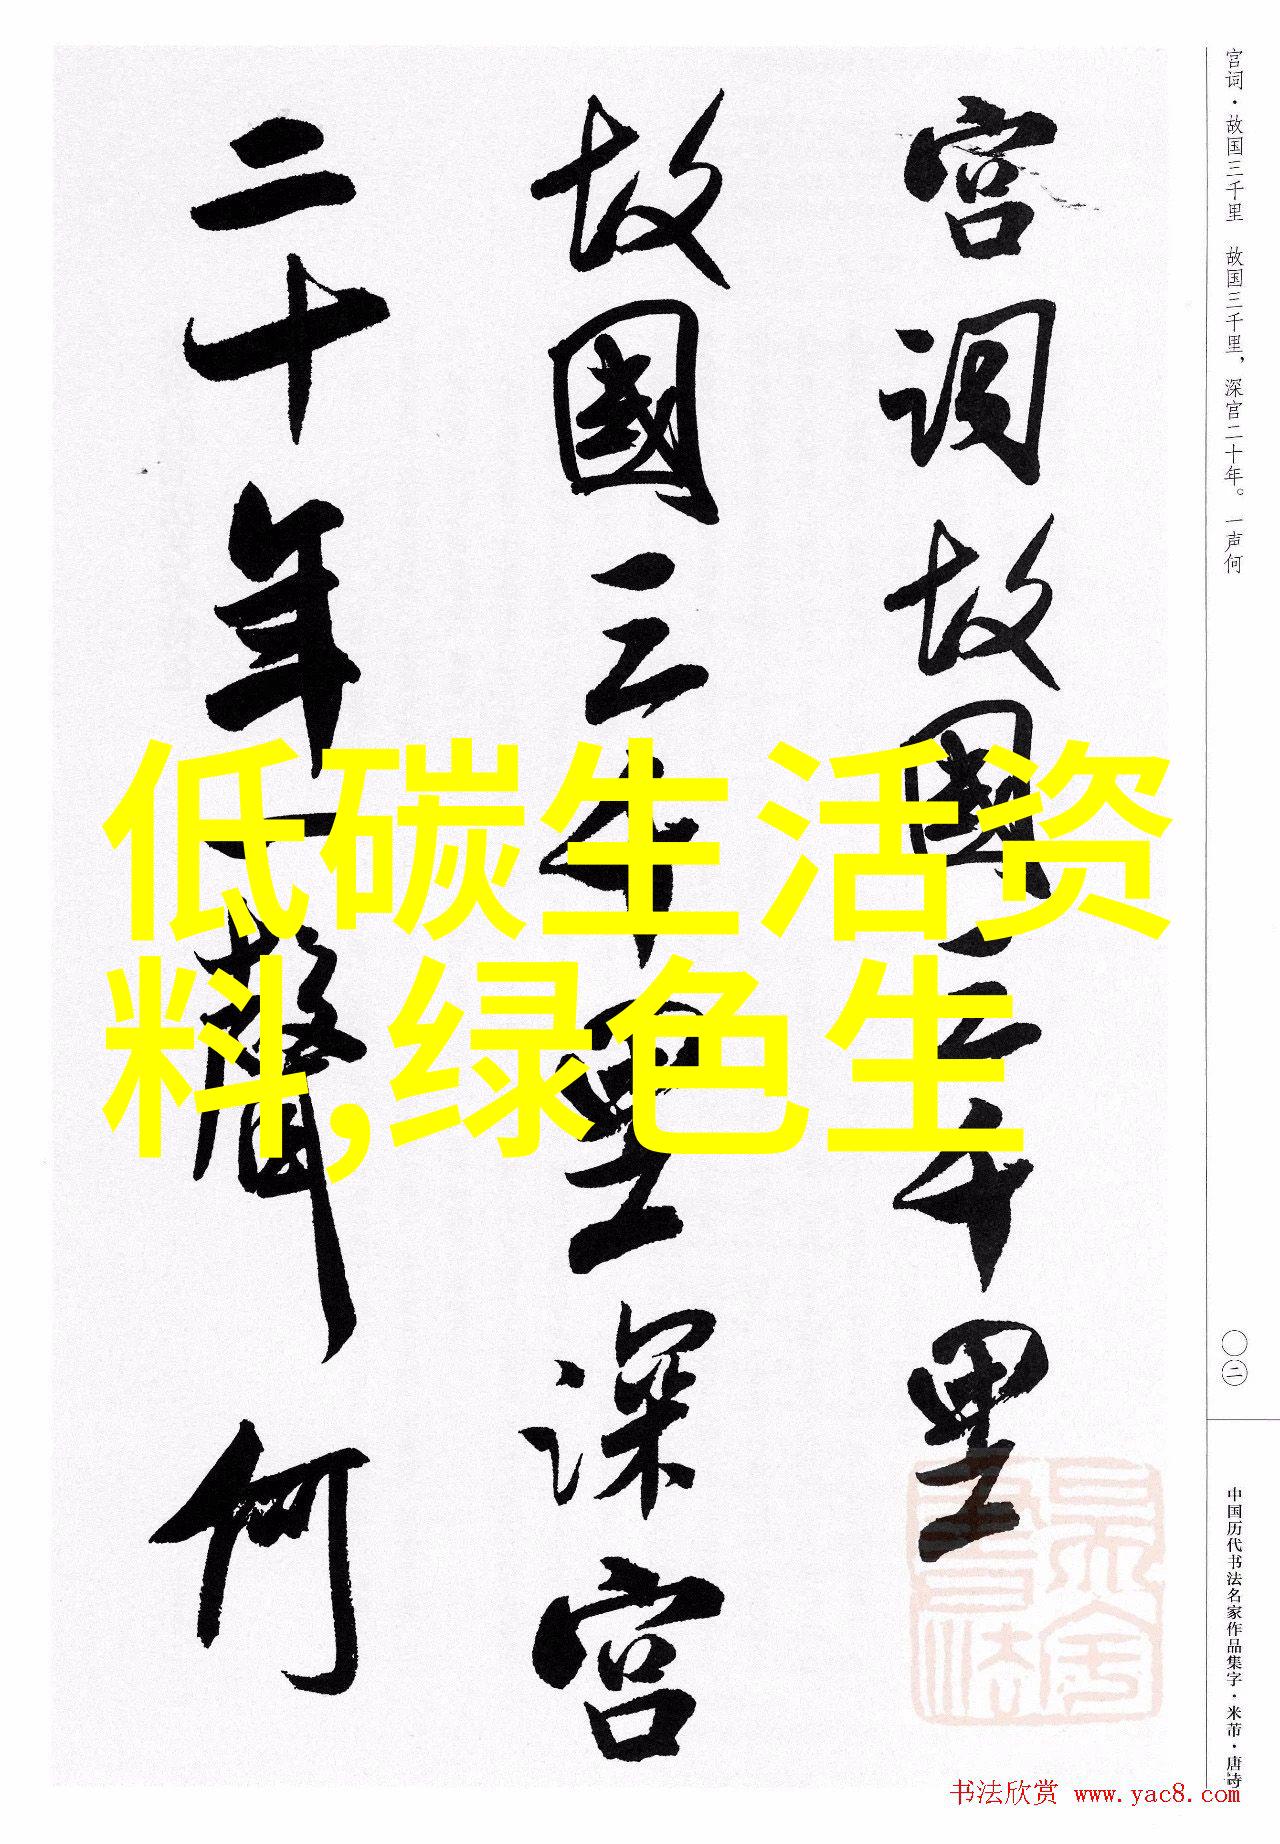 宫词·故国三千里 故国三千里，深宫二十年。一声何
宫词故國三千里
故國三千里深宫
二十年一聲何
低碳生活资
料,绿色生
〇二
中国历代书法名家作品集字·米芾·唐诗
书法欣赏 www.yac8.com